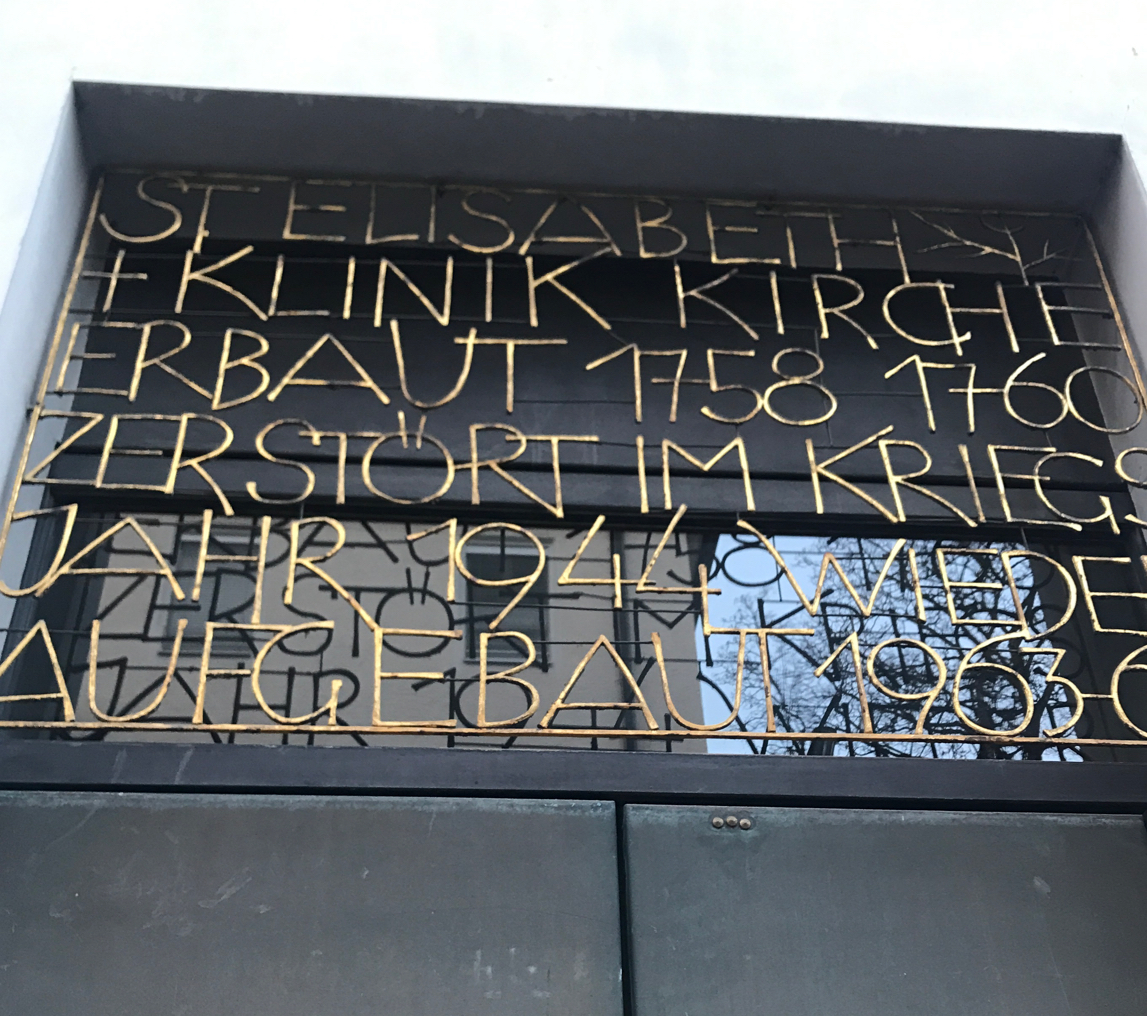 ST. ELISABETH
+ KLINIK KIRCHE
ERBAUT 1758 1760
ZERSTÖRT IM KRIEGS
JAHR 1944 WIEDE
AUFGEBAUT 1963-6